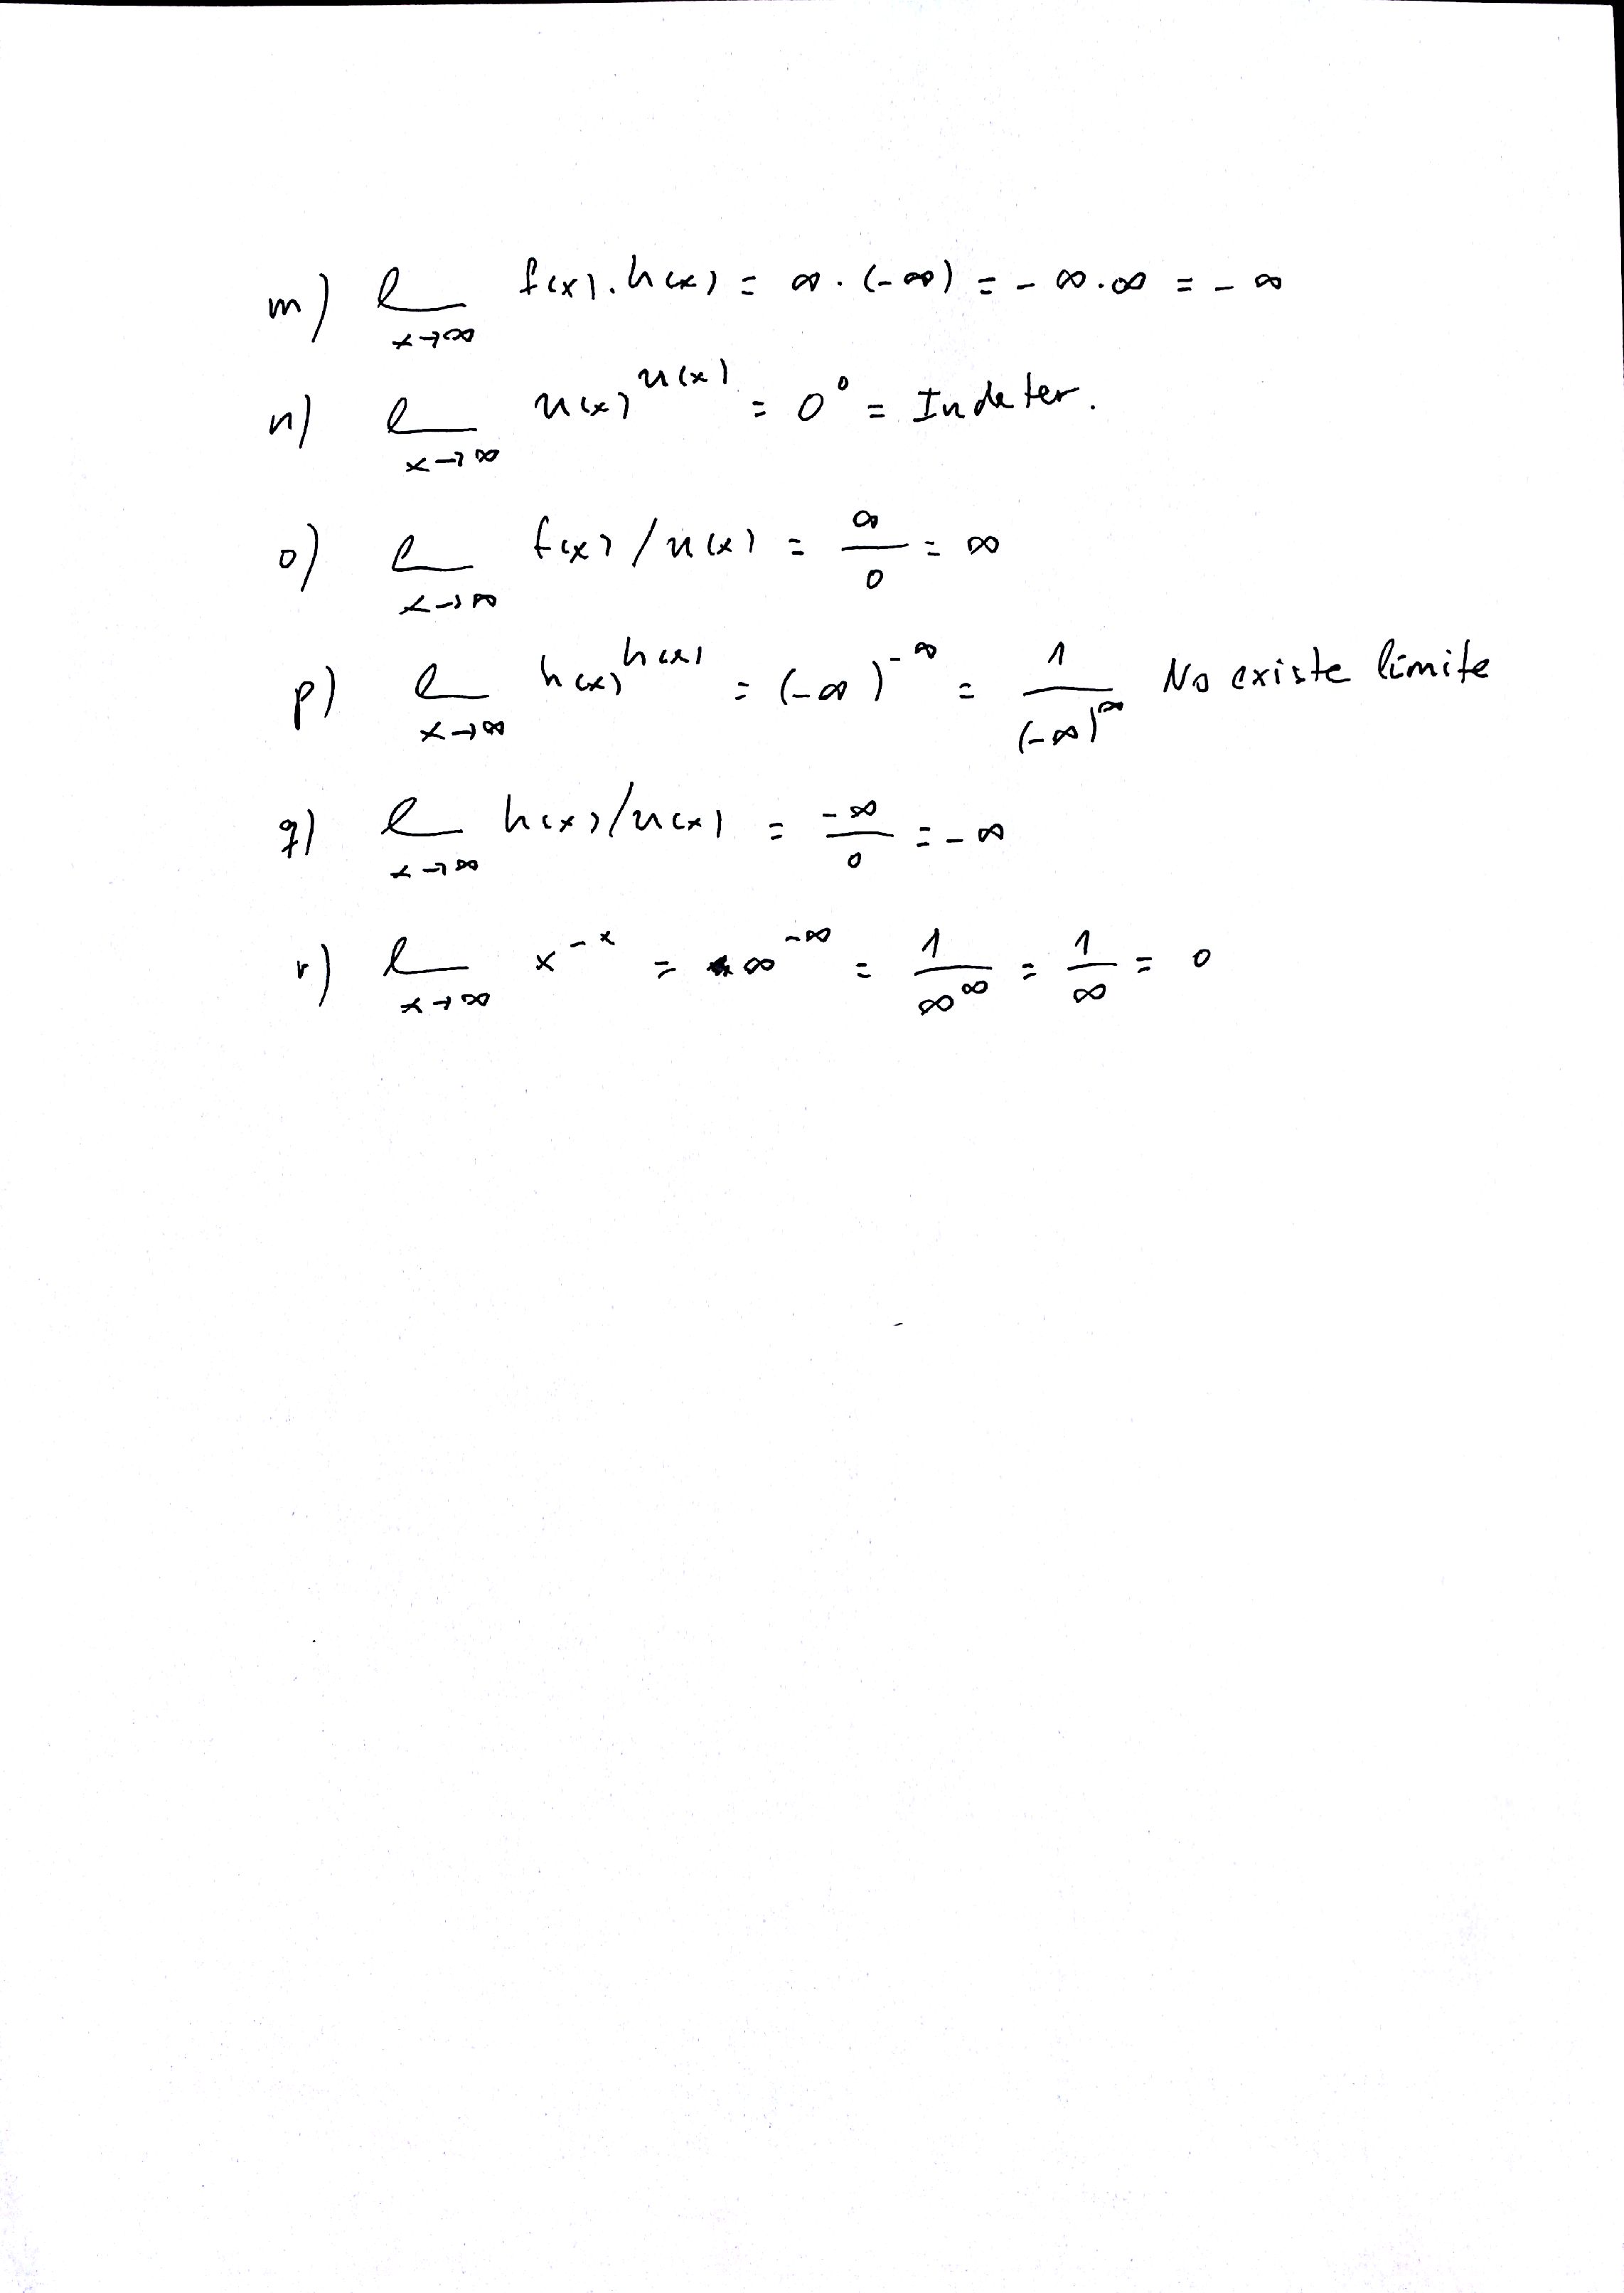 m) l x→∞ f(x).h(x) = ∞.(-∞) = -∞.∞ = -∞
n) l x→∞ u(x)^u(x) = 0^0 = Indeter.
o) l x→∞ f(x)/u(x) = ∞/0 = ∞
p) l x→∞ h(x)^h(x) = (-∞)^-∞ = 1/(-∞)^∞ No existe límite
q) l x→∞ h(x)/u(x) = -∞/0 = -∞
r) l x→∞ x^-x = ∞^-∞ = 1/∞^∞ = 1/∞ = 0